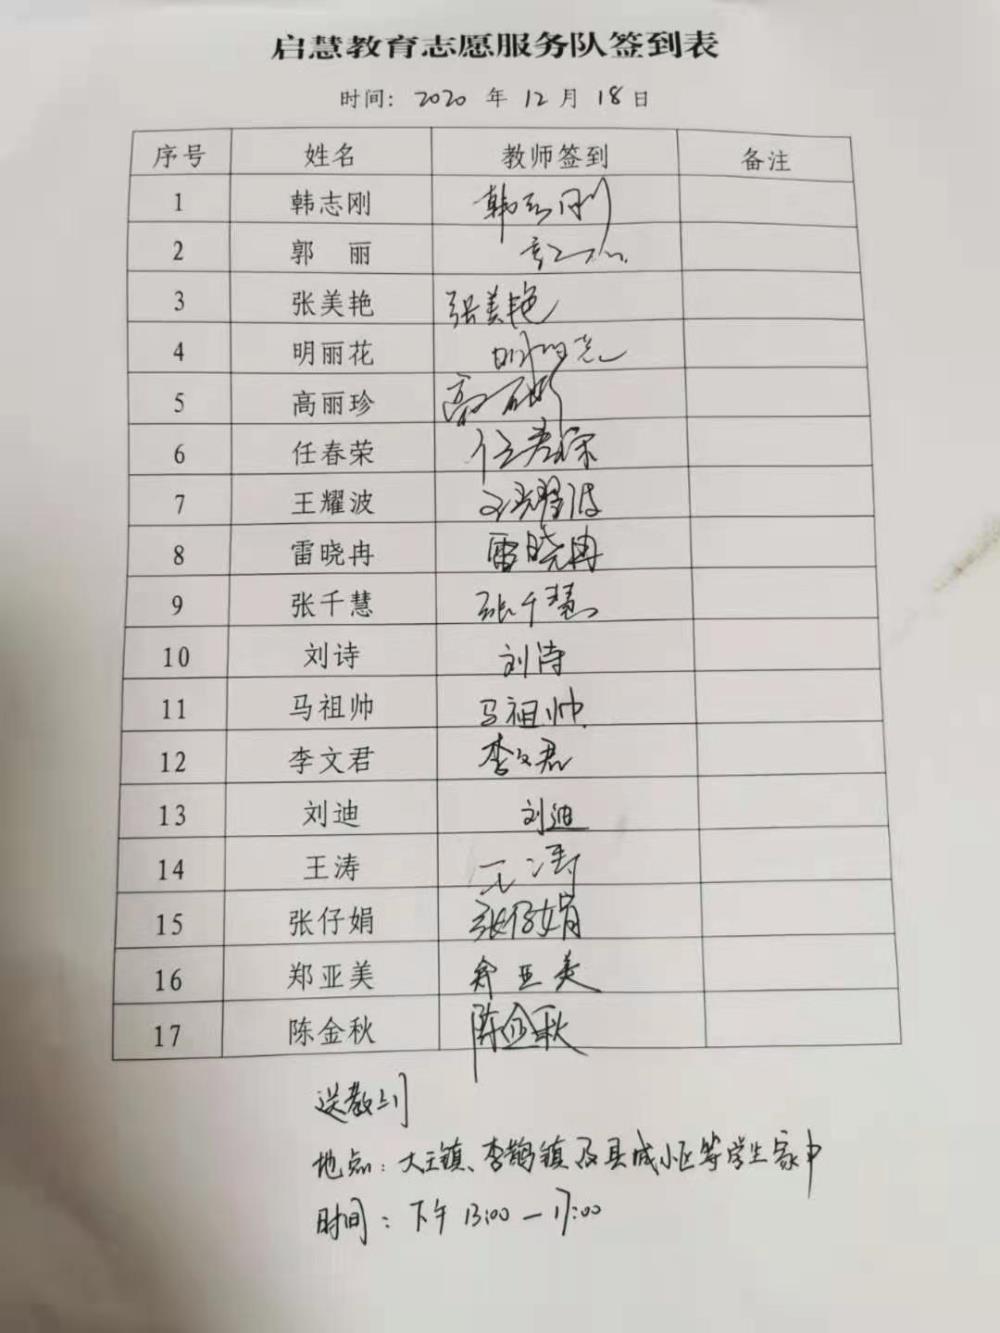 启慧教育志愿服务队签到表
时间: 2020 年 12 月 18 日
序号 姓名 教师签到 备注
1 韩志刚 韩志刚
2 郭 丽
3 张美艳 张美艳
4 明丽花
5 高丽珍 高丽珍
6 任春荣 任春荣
7 王耀波 王耀波
8 雷晓冉 雷晓冉
9 张千慧 张千慧
10 刘诗 刘诗
11 马祖帅 马祖帅
12 李文君 李文君
13 刘迪 刘迪
14 王涛 王涛
15 张仔娟 张仔娟
16 郑亚美 郑亚美
17 陈金秋 陈金秋
送教上门
地点: 大王镇、李鹊镇及县城小区等学生家中
时间: 下午 13:00 — 17:00